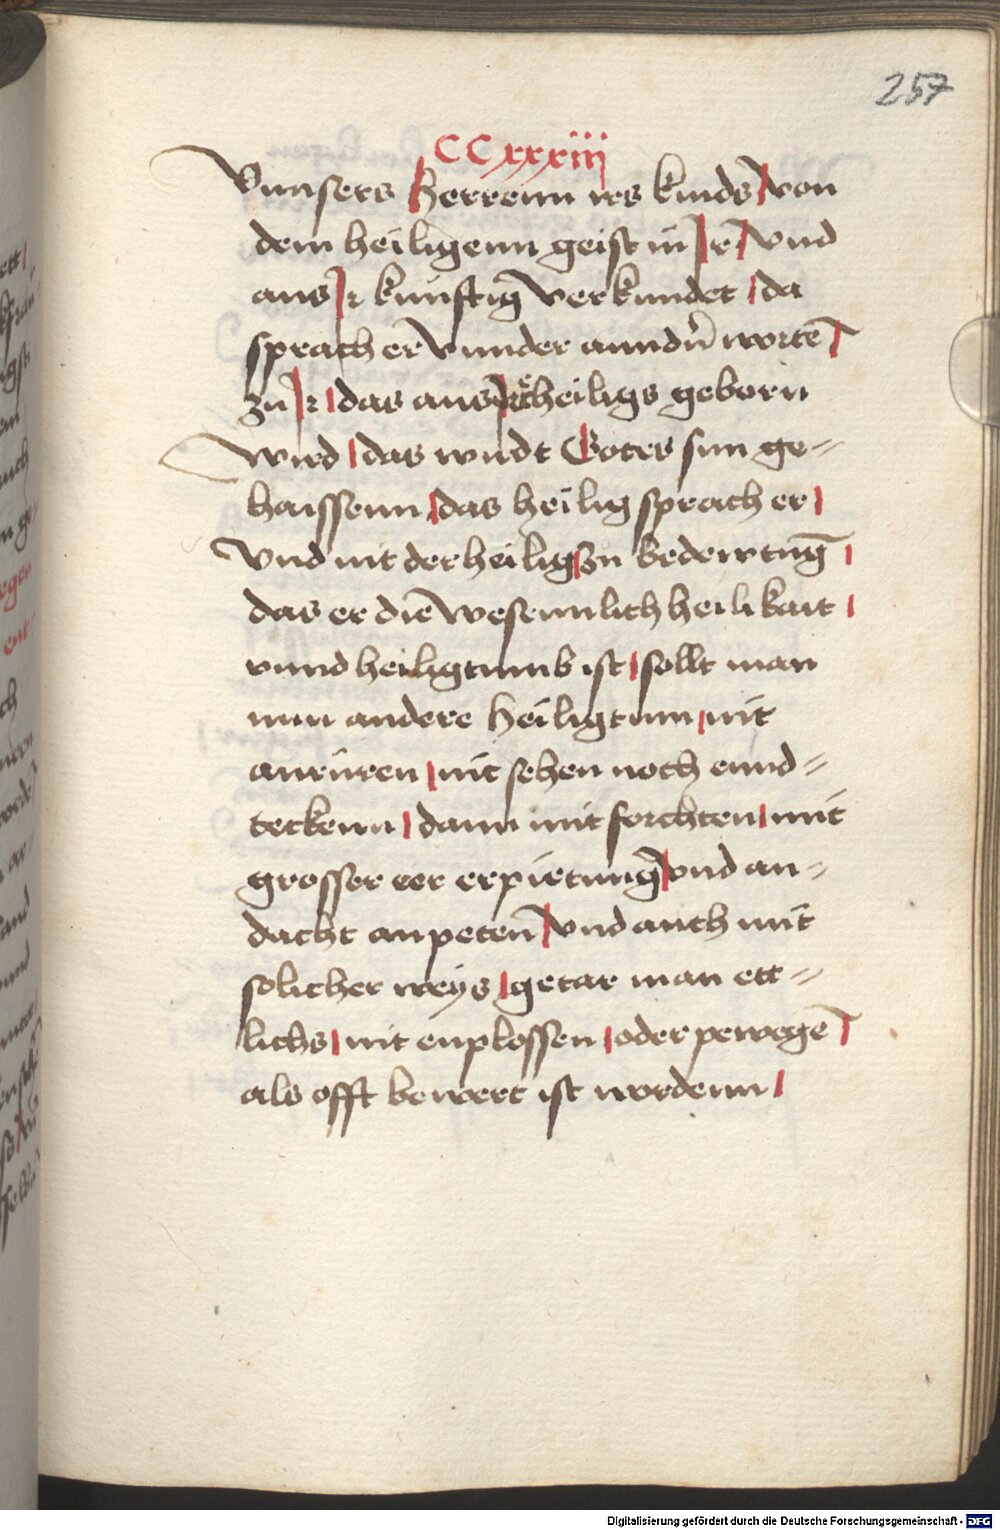 257
CCxxxiij
Vnnsers Herrenn irs kinds von
dem heiligenn geist in Jr vnd
aus Jr kunftig verkundet da
sprach er vnnder anndn̄ wortē
zu Jr das aus Jr heiligs geborn
wird das wirdt Gotes sun ge-
haissenn das heilig sprach er
vnd nit der heilig zu bedewtūg
das er die wesennlich heilikait
vnnd heiligtumb ist sollt man
nun andere heiligtum nit
anruren nit sehen noch ennd-
teckenn dann mit forchten mit
grosser eer erpietung vnd an-
dacht anpeten vnd auch mit
solicher weys getar man ett-
lichs nit enplossen oder pewegē
als offt bewert ist wordenn
Digitalisierung gefördert durch die Deutsche Forschungsgemeinschaft - DFG